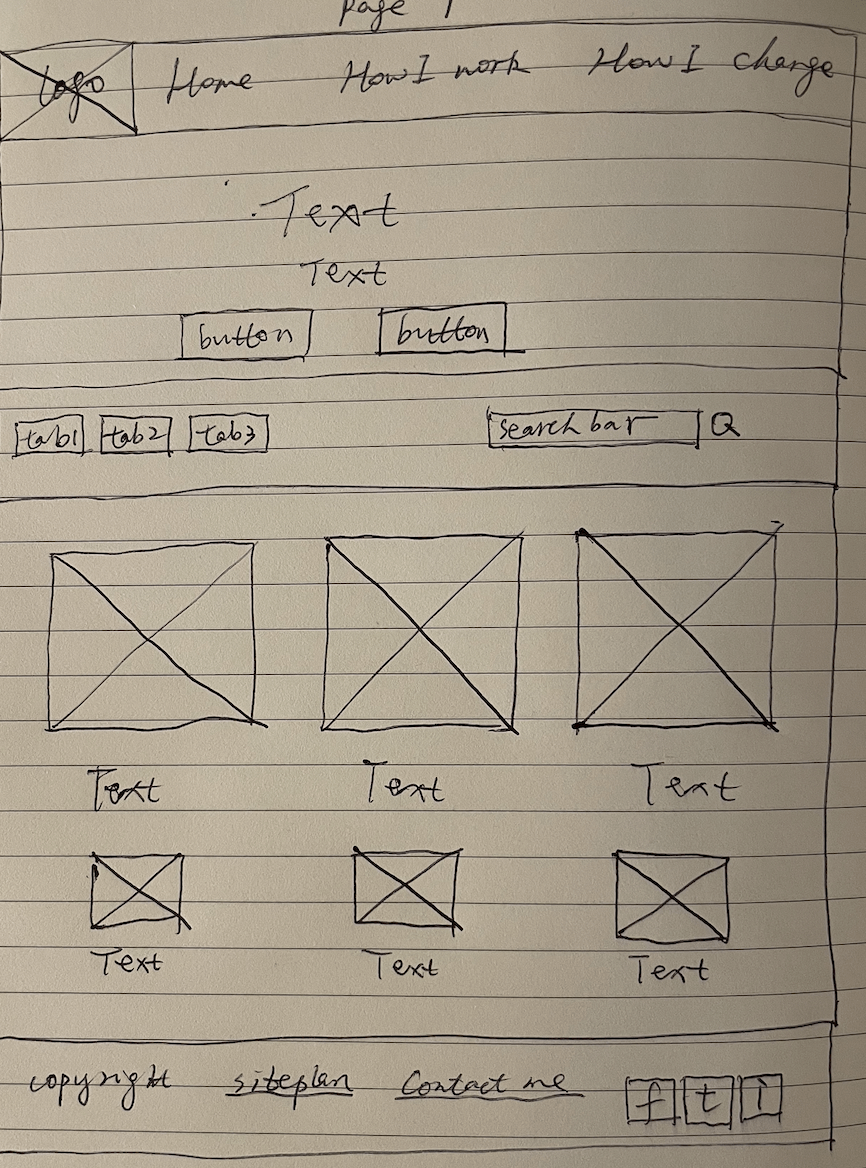 Page 1
Logo Home How I work How I change
Text
Text
button button
tab1 tab2 tab3 search bar Q
Text Text Text
Text Text Text
copyright siteplan Contact me f t i